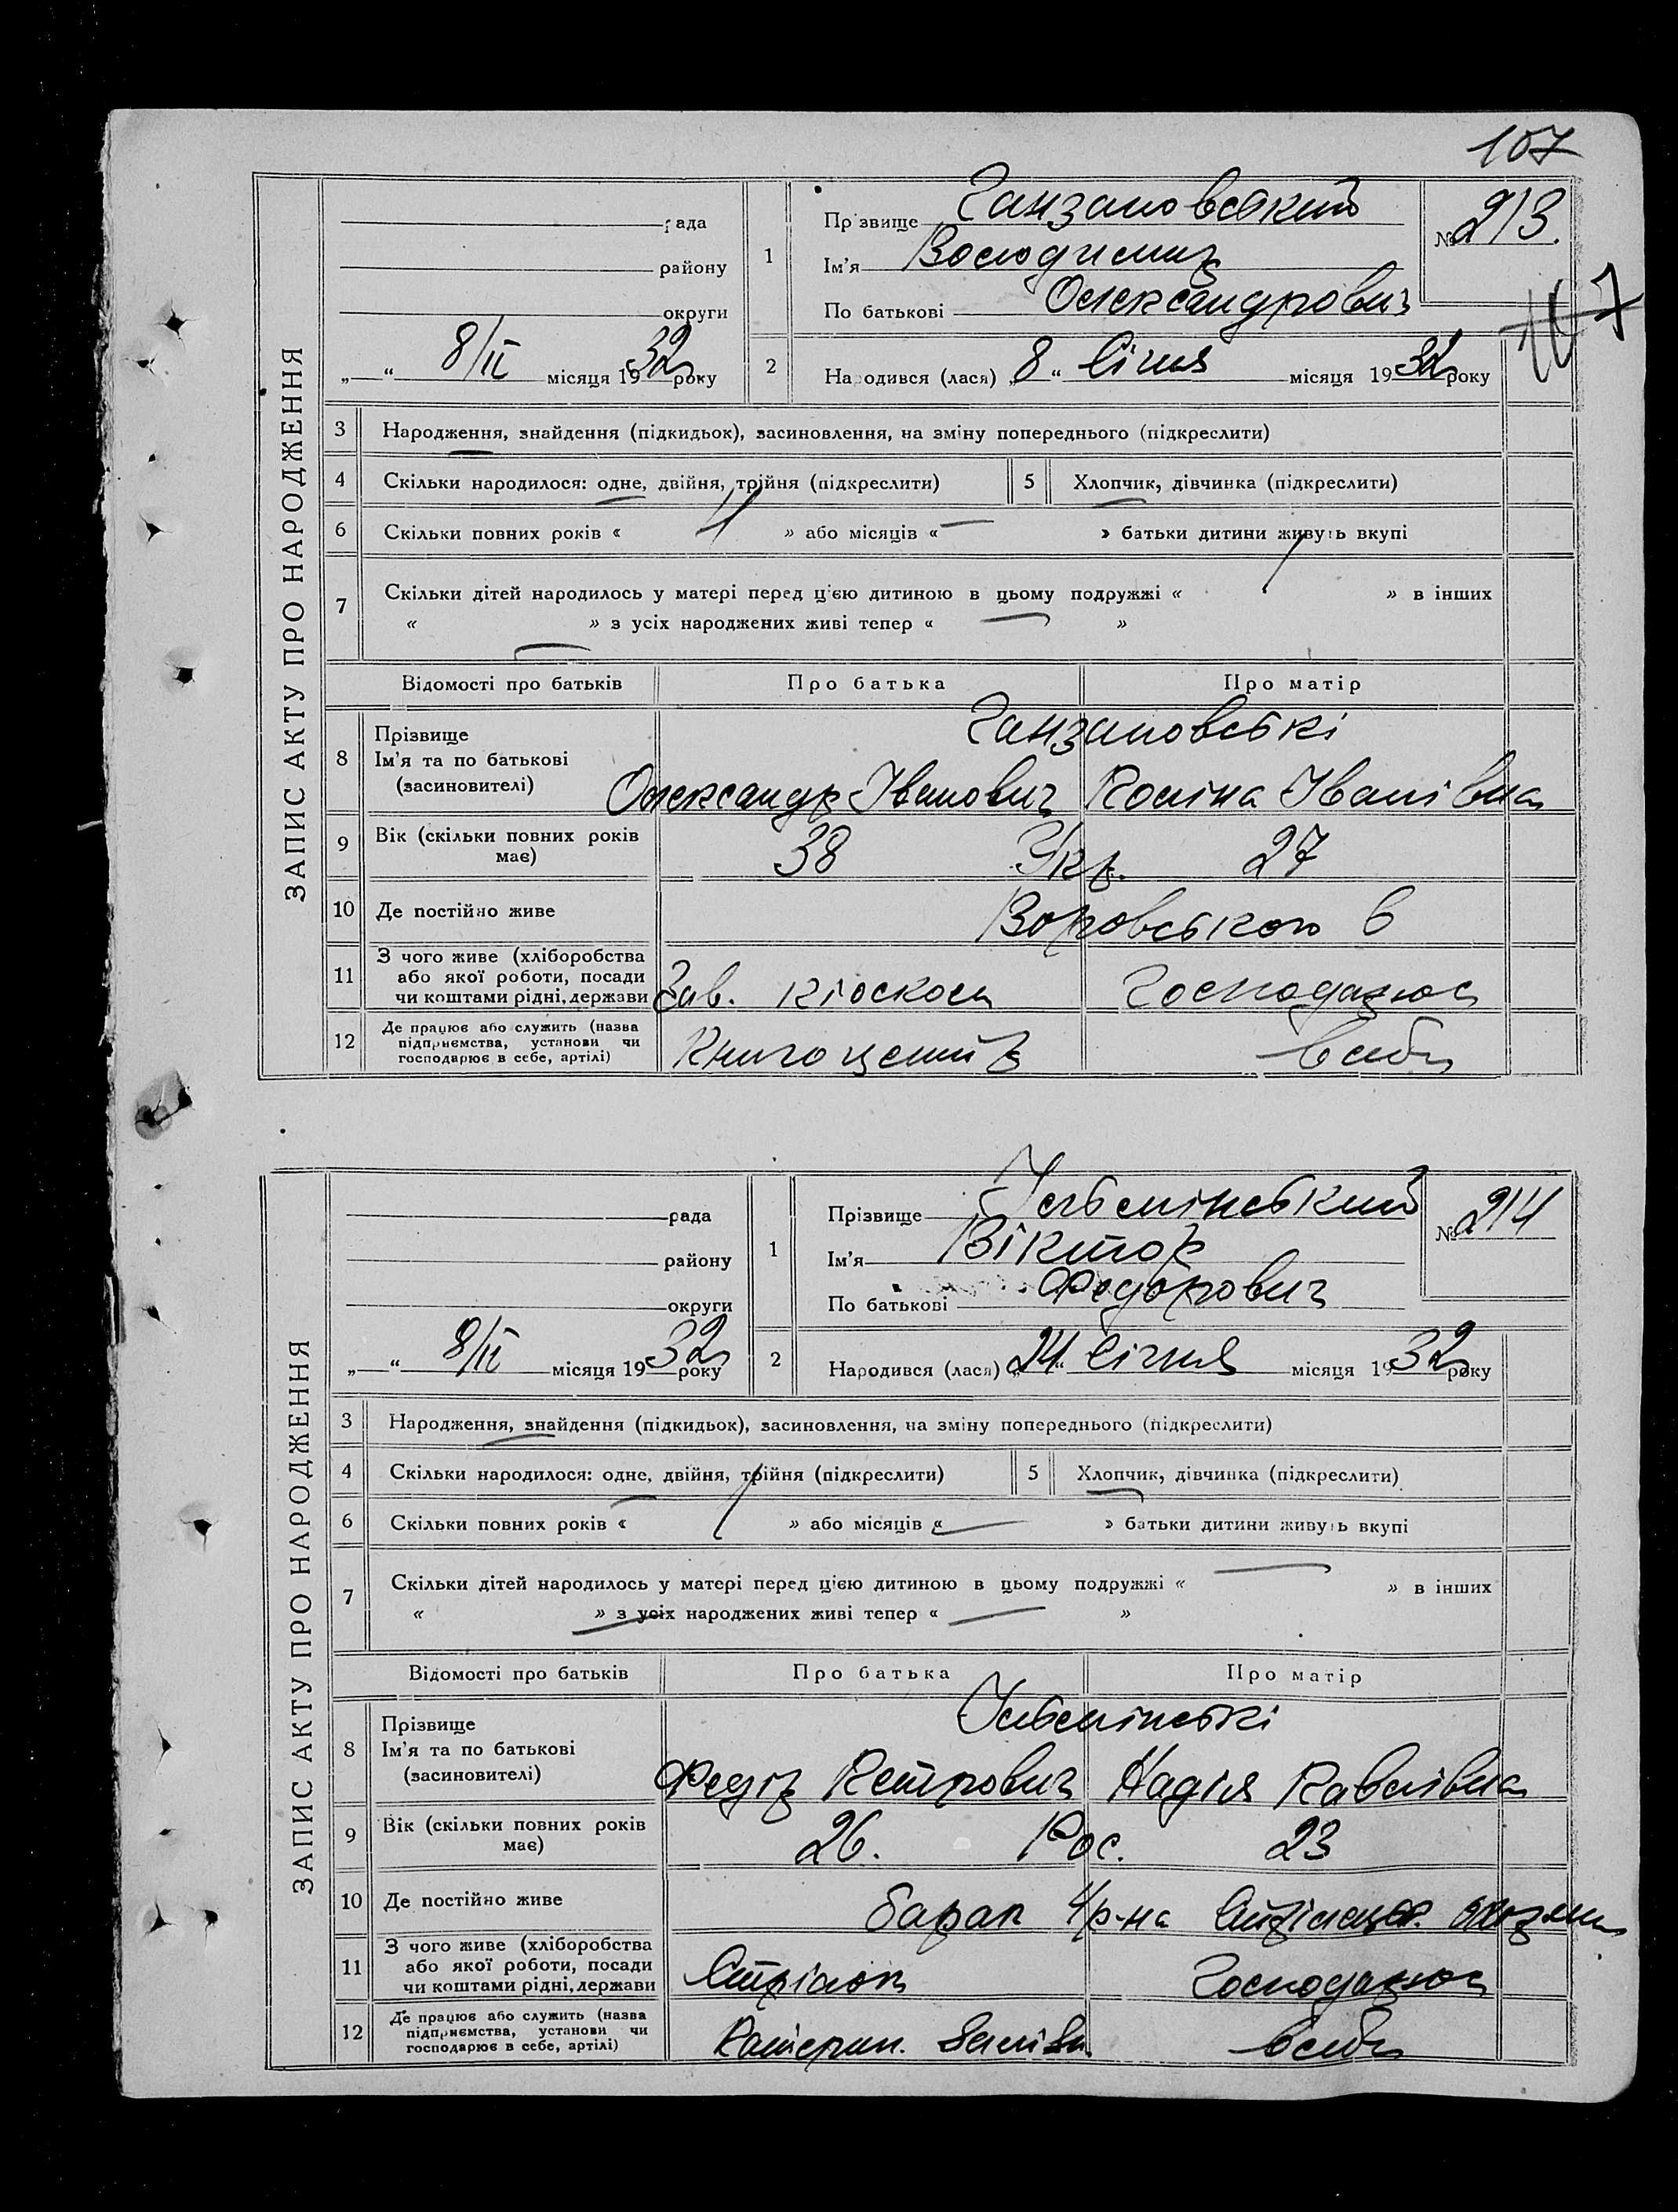 107
ЗАПИС АКТУ ПРО НАРОДЖЕННЯ
рада
району
округи
„ “ 8/II місяця 1932 року
1
Прізвище Ганзановський
Ім'я Володимир
По батькові Олександрович
№ 213.
107
2
Народився (лася) „8“ Січня місяця 1932 року
3 Народження, знайдення (підкидьок), засиновлення, на зміну попереднього (підкреслити)
4 Скільки народилося: одне, двійня, трійня (підкреслити) 5 Хлопчик, дівчинка (підкреслити)
6 Скільки повних років « » або місяців « — » батьки дитини живуть вкупі
7 Скільки дітей народилось у матері перед цією дитиною в цьому подружжі « » в інших
« » з усіх народжених живі тепер « »
Відомості про батьків Про батька Про матір
8 Прізвище Ім'я та по батькові (засиновителі)
Ганзановські
Олександр Іванович Поліна Іванівна
9 Вік (скільки повних років має) 38 Укр. 27
10 Де постійно живе Воровського 6
11 З чого живе (хліборобства або якої роботи, посади чи коштами рідні, держави Зав. кіоском Господарює
12 Де працює або служить (назва підприємства, установи чи господарює в себе, артілі) Книгоцентр в себе
ЗАПИС АКТУ ПРО НАРОДЖЕННЯ
рада
району
округи
„ “ 8/II місяця 1932 року
1
Прізвище
Ім'я Віктор
По батькові Федорович
№ 214
2
Народився (лася) „24“ Січня місяця 1932 року
3 Народження, знайдення (підкидьок), засиновлення, на зміну попереднього (підкреслити)
4 Скільки народилося: одне, двійня, трійня (підкреслити) 5 Хлопчик, дівчинка (підкреслити)
6 Скільки повних років « » або місяців « — » батьки дитини живуть вкупі
7 Скільки дітей народилось у матері перед цією дитиною в цьому подружжі « — » в інших
« — » з усіх народжених живі тепер « — »
Відомості про батьків Про батька Про матір
8 Прізвище Ім'я та по батькові (засиновителі)
Федір Петрович Надія Павлівна
9 Вік (скільки повних років має) 26. Рос. 23
10 Де постійно живе барак 4 р-на
11 З чого живе (хліборобства або якої роботи, посади чи коштами рідні, держави Стрілок Господарює
12 Де працює або служить (назва підприємства, установи чи господарює в себе, артілі) Катерин. Залізн. в себе